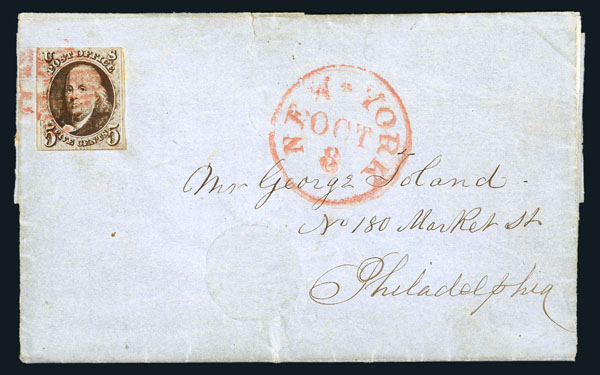 U S
POST OFFICE
5 FIVE CENTS 5
NEW YORK
OCT
8
Mr George Toland
No 180 Market St
Philadelphia